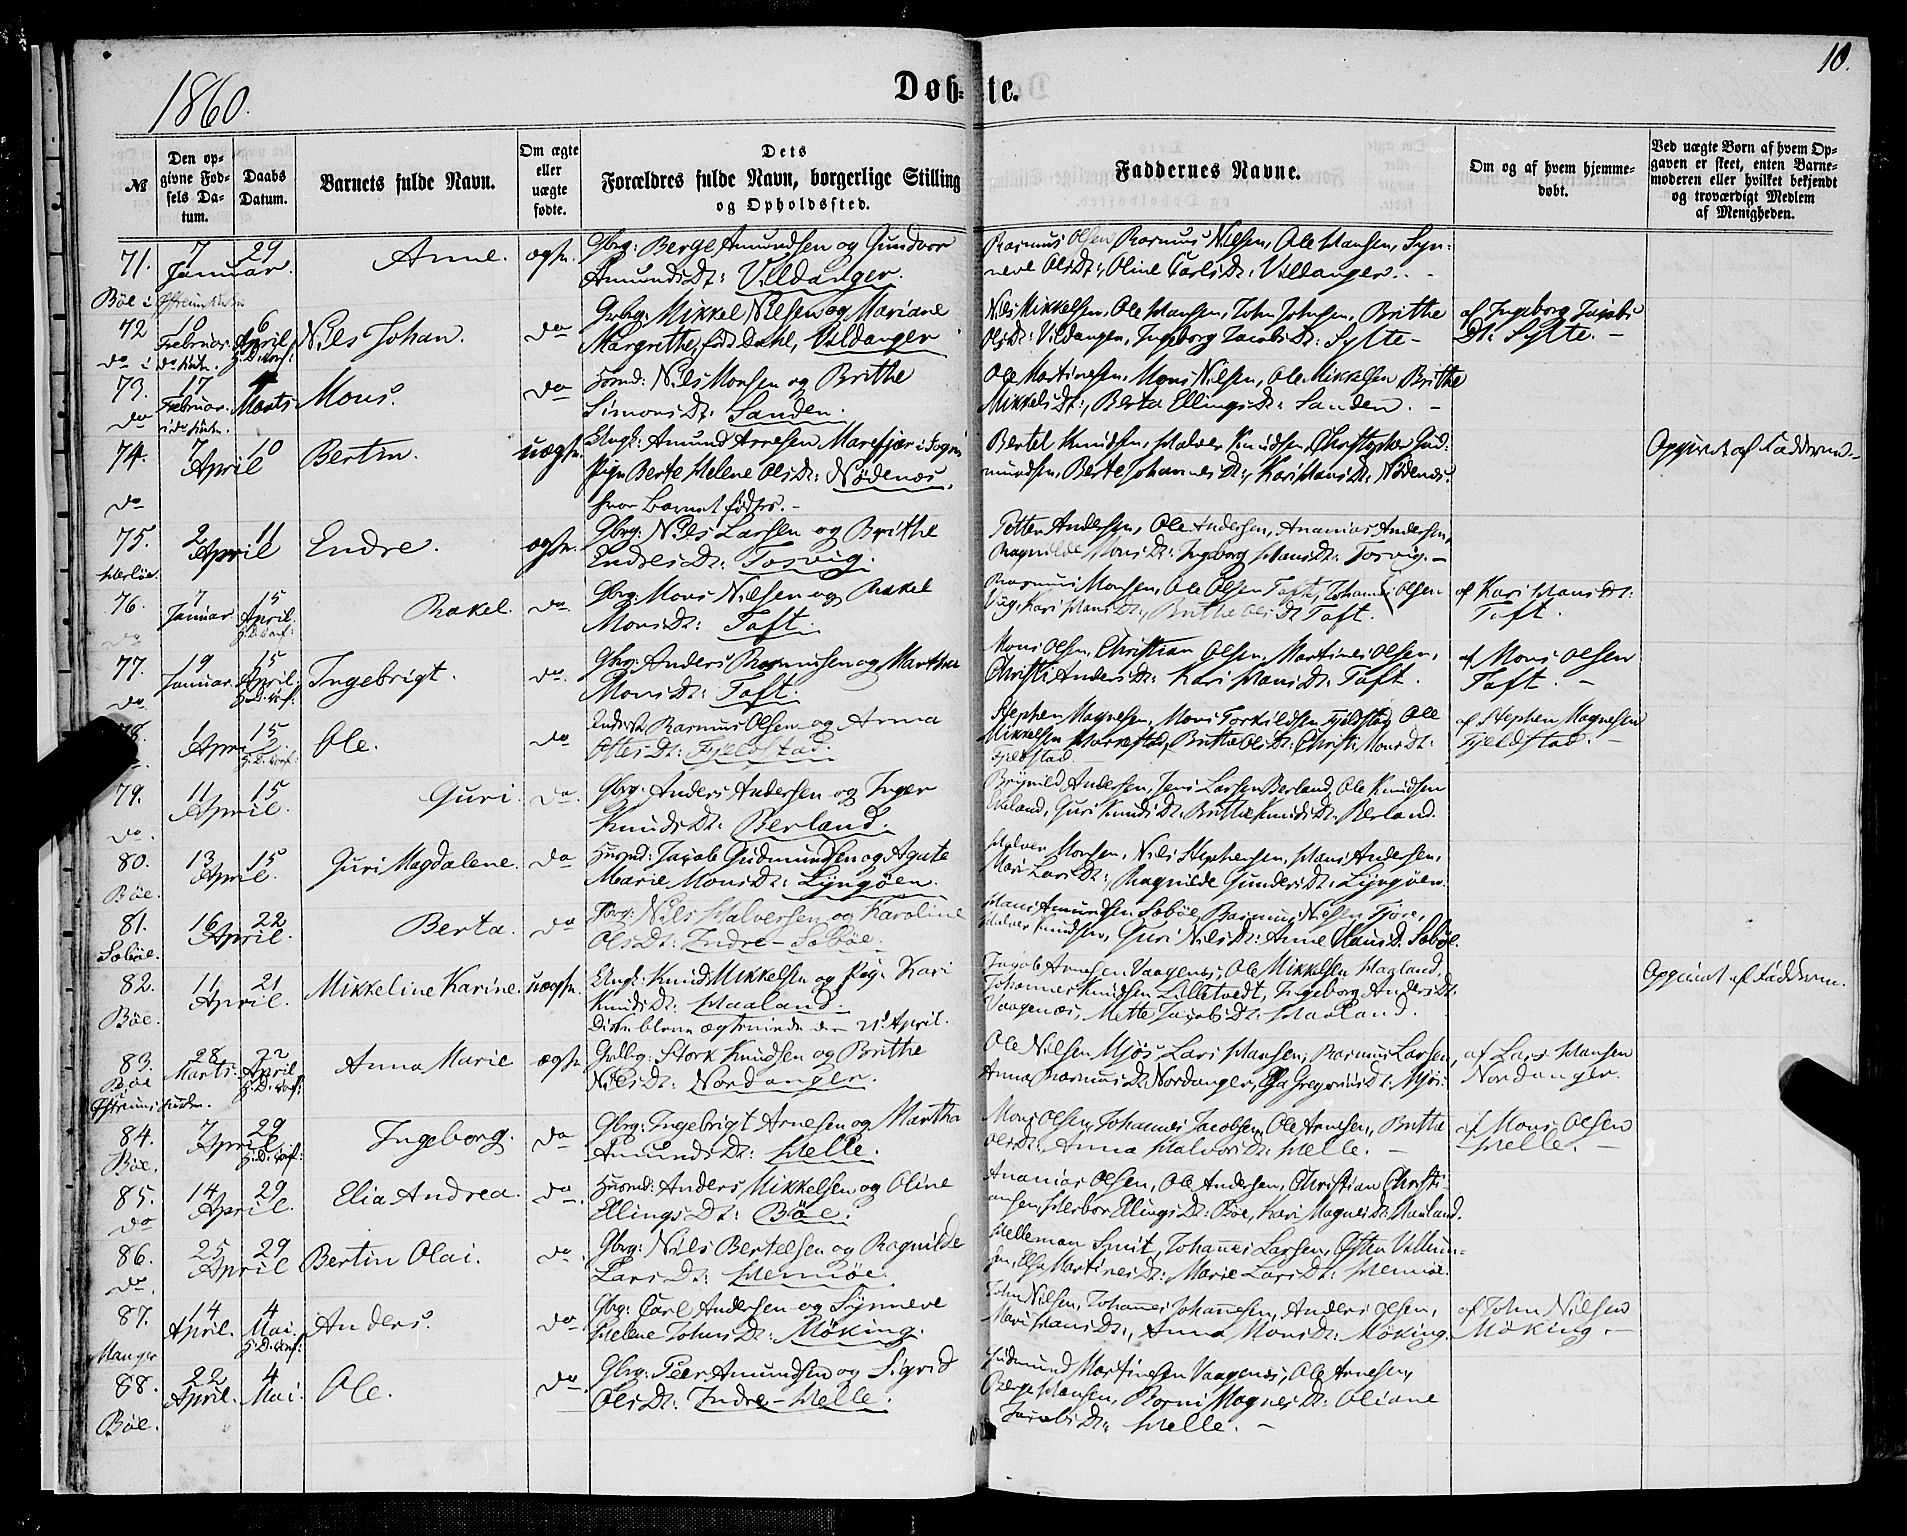 10.
1860.
Døb-te.
№
Den opgivne Fødsels Datum.
Daabs Datum.
Barnets fulde Navn.
Om ægte eller uægte fødte.
Dets Forældres fulde Navn, borgerlige Stilling og Opholdssted.
Faddernes Navne.
Om og af hvem hjemmedøbt.
Ved uægte Børn af hvem Opgaven er skeet, enten Barnemoderen eller hvilket bekjendt og troværdigt Medlem af Menigheden.
71. 7 Januar. 29 Anne. Gbrg: Berge Amundsen og Gundvor
Amunds Dt: Vildanger.
Rasmus Olsen, Rasmus Nilsen, Ole Hansen, Syn-
neve Ols Dt:, Oline Carls Dt: Vildanger. -
Bøe i
72 Februar. 6 April Nils Johan. do Gbrg: Mikkel Nilsen og Mariane
Margrethe, født Dahl, Vildanger
Nils Mikkelsen, Ole Hansen, John Johnsen, Brithe
Ols Dt: Vildanger, Ingeborg Jacobs Dt: Sylte -
af Ingeborg Jacobs
Dt: Sylte. -
73. 17 Februar. 4 Marts Mons. do Huusmd: Nils Monsen og Brithe
Simons Dt: Sanden.
Ole Martinesen, Mons Nilsen, Ole Mikkelsen Brithe
Mikkels Dt:, Berta Ellings Dt: Sanden. -
do
74. 7 April 10 Bertin. uægte. Ungk: Amund Arnesen Marefjær i Sogn
Pign Berte Helene Ols Dt: Nødenæs,
hvor Barnet fødtes. -
Bertel Knudsen, Halvor Knudsen, Christopher Gud-
mundsen, Berte Johannes Dt:, Kari Hans Dt: Nødenæs.
Opgivet af Fadderne. -
do
75. 2 April 11 Endre. Gbrg: Nils Larsen og Brithe
Endres Dt: Tosvig.
Petter Andersen, Ole Andersen, Ananias Andersen,
Ragnilde Mons Dt: Ingeborg Hans Dt: Tosvig. -
Herløe.
76. 7 Januar 15 April. Rakel. do Gbrg: Mons Nilsen og Rakel
Mons Dt: Toft.
Rasmus Monsen, Ole Olsen Toft, Johannes Olsen
Kari Hans Dt:, Brithe Ols Dt Toft.
af Kari Hans Dt:
Toft.
do
77. 19 Januar. 15 April. Ingebrigt. do. Gbrg: Anders Rasmusen og Martha
Mons Dt: Toft.
Mons Olsen, Christian Olsen, Martines Olsen,
Christi Anders Dt: Kari Hans Dt: Toft.
af Mons Olsen
Toft. -
do
78. 1 April 15 Ole. do Rasmus Olsen og Anna
Dt: Fjeldstad.
Stephen Magnesen, Mons Torkildsen Fjeldstad, Ole
Mikkelsen Brithe Ols Dt: Christi Mons Dt:
Fjeldstad.
af Stephen Magnesen
Fjeldstad. -
79. 11 April. 15 Guri. do. Gbrg: Anders Andersen og Inger
Knuds Dt: Berland.
Brynild Andersen, Jens Larsen Berland, Ole Knudsen
Guri Knuds Dt: Brithe Knuds Dt: Berland.
do.
80. 13 April. 15 Guri Magdalene. do Huusmd: Jacob Gudmundsen og Agate
Marie Mons Dt: Lyngøen.
Halvor Monsen, Nils Stephensen, Hans Andersen,
Mari Lars Dt:, Ragnilde Gunders Dt: Lyngøen.
Bøe.
81. 16 April. 22 Berta. do Gbrg: Nils Halversen og Karoline
Ols Dt: Indre-Sæbøe.
Hans Amundsen Sæbøe, Rasmus Nilsen
Halvor Knudsen, Guri Nils Dt: Anne Hans Dt Sæbøe.
Sæbøe.
82. 11 April. 21 Mikkeline Karine. uægte. Ungk: Knud Mikkelsen og Pig: Kari
Knuds Dt: Haaland.
Disse bleve ægteviede den 21d April.
Jacob Arnesen Vaagenes, Ole Mikkelsen Haaland,
Johannes Knudsen Lilletvedt, Ingeborg Anders Dt:
Vaagenes, Mette Jacobs Dt: Haaland.
Opgivet af Fadderne.
Bøe.
83. 28 Marts. 22 April Anna Marie ægte. Gbrg: Stork Knudsen og Brithe
Nils Dt: Nordanger.
Ole Nilsen Mjøs, Lars Hansen, Rasmus Larsen,
Anna Rasmus Dt Nordanger, Elsa Gregorius Dt: Mjøs.
af Lars Hansen
Nordanger.
Bøe
84. 7 April 29 Ingeborg. do Gbrg: Ingebrigt Arnesen og Martha
Amunds Dt: Helle.
Mons Olsen, Johannes Jacobsen, Ole Arnesen, Brithe
Ols Dt:, Anna Halvors Dt: Helle. -
af Mons Olsen
Helle. -
Bøe.
85. 14 April. 29 Elia Andrea. do. Huusmd: Anders Mikkelsen og Oline
Ellings Dt: Bøe.
Ananias Olsen, Ole Andersen, Christian Christi-
ansen, Herbor Ellings Dt: Bøe, Kari Magnes Dt: Haaland.
do
86. 25 April 29 Bertin Olai. do. Gbrg: Nils Bertelsen og Ragnilde
Lars Dt: Hernøe.
Helleman Smit, Johannes Larsen, Osten Villum-
sen, Elsa Martines Dt: Marie Lars Dt: Hernøe.
do.
87. 14 April. 4 Mai. Anders. do. Gbrg: Carl Andersen og Synneve
Helene Johns Dt: Møking.
John Nilsen, Johannes Johannesen, Anders Olsen,
Mari Hans Dt:, Anna Mons Dt: Møking.
af John Nilsen
Møking. -
Manger
88. 22 April. 4 Mai. Ole. do Gbrg: Peer Amundsen og Sigrid
Ols Dt: Indre-Helle.
Gudmund Martinesen Vaagenes, Ole Arnesen,
Berge Hansen, Magnes Dt: Oliane
Jacobs Dt: Helle. -
Bøe.